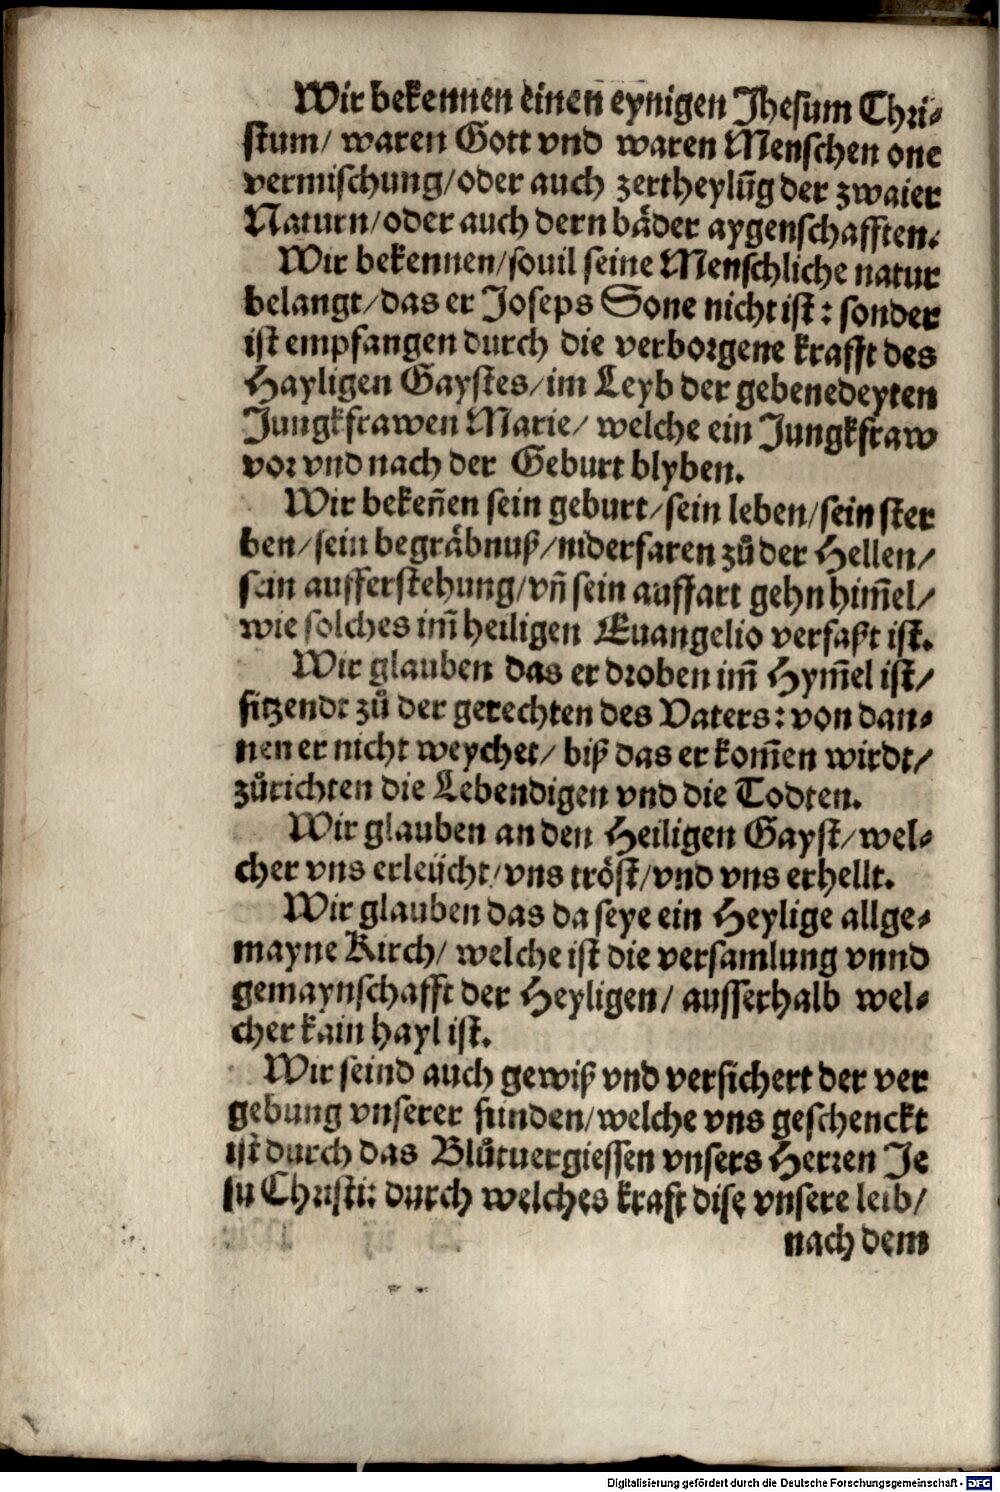 Wir bekennen einen eynigen Jhesum Chri⸗
stum/ waren Gott vnd waren Menschen one
vermischung/oder auch zertheylūg der zwaier
Naturn/oder auch dern bäder aygenschafften.
Wir bekennen/souil seine Menschliche natur
belangt/das er Joseps Sone nicht ist: sonder
ist empfangen durch die verborgene krafft des
Hayligen Gaystes/im Leyb der gebenedeyten
Jungkfrawen Marie/ welche ein Jungkfraw
vor vnd nach der Geburt blyben.
Wir bekeñen sein geburt/sein leben/sein ster
ben/sein begräbnuß/niderfaren zů der Hellen/
sein aufferstehung/vñ sein auffart gehn him̄el/
wie solches im̄ heiligen Euangelio verfaßt ist.
Wir glauben das er droben im̄ Hym̄el ist/
sitzendt zů der gerechten des Vaters: von dan⸗
nen er nicht weychet/ biß das er kom̄en wirdt/
zůrichten die Lebendigen vnd die Todten.
Wir glauben an den Heiligen Gayst/wel⸗
cher vns erleücht/vns tröst/vnd vns erhellt.
Wir glauben das da seye ein Heylige allge⸗
mayne Kirch/ welche ist die versamlung vnnd
gemaynschafft der Heyligen/ ausserhalb wel⸗
cher kain hayl ist.
Wir seind auch gewiß vnd versichert der ver
gebung vnserer sunden/welche vns geschenckt
ist durch das Blůtuergiessen vnsers Herren Je
su Christi: durch welches kraft dise vnsere leib/
nach dem
Digitalisierung gefördert durch die Deutsche Forschungsgemeinschaft - DFG